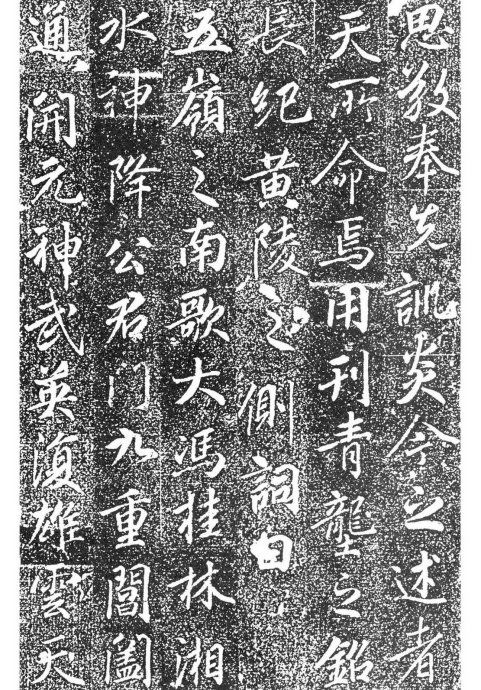 思教奉先訓矣今之述者
天所命焉用刊青壟之銘
長紀黃陵之側詞曰
五嶺之南歌大馮桂林湘
水神降公君門九重閶闔
通開元神武英復雄雲天